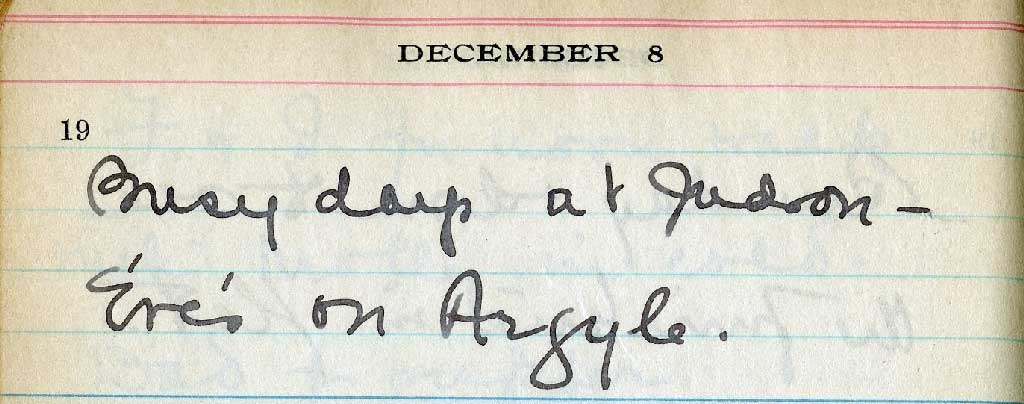 DECEMBER 8
19
Busy days at Judson –
Eve's on Argyle.